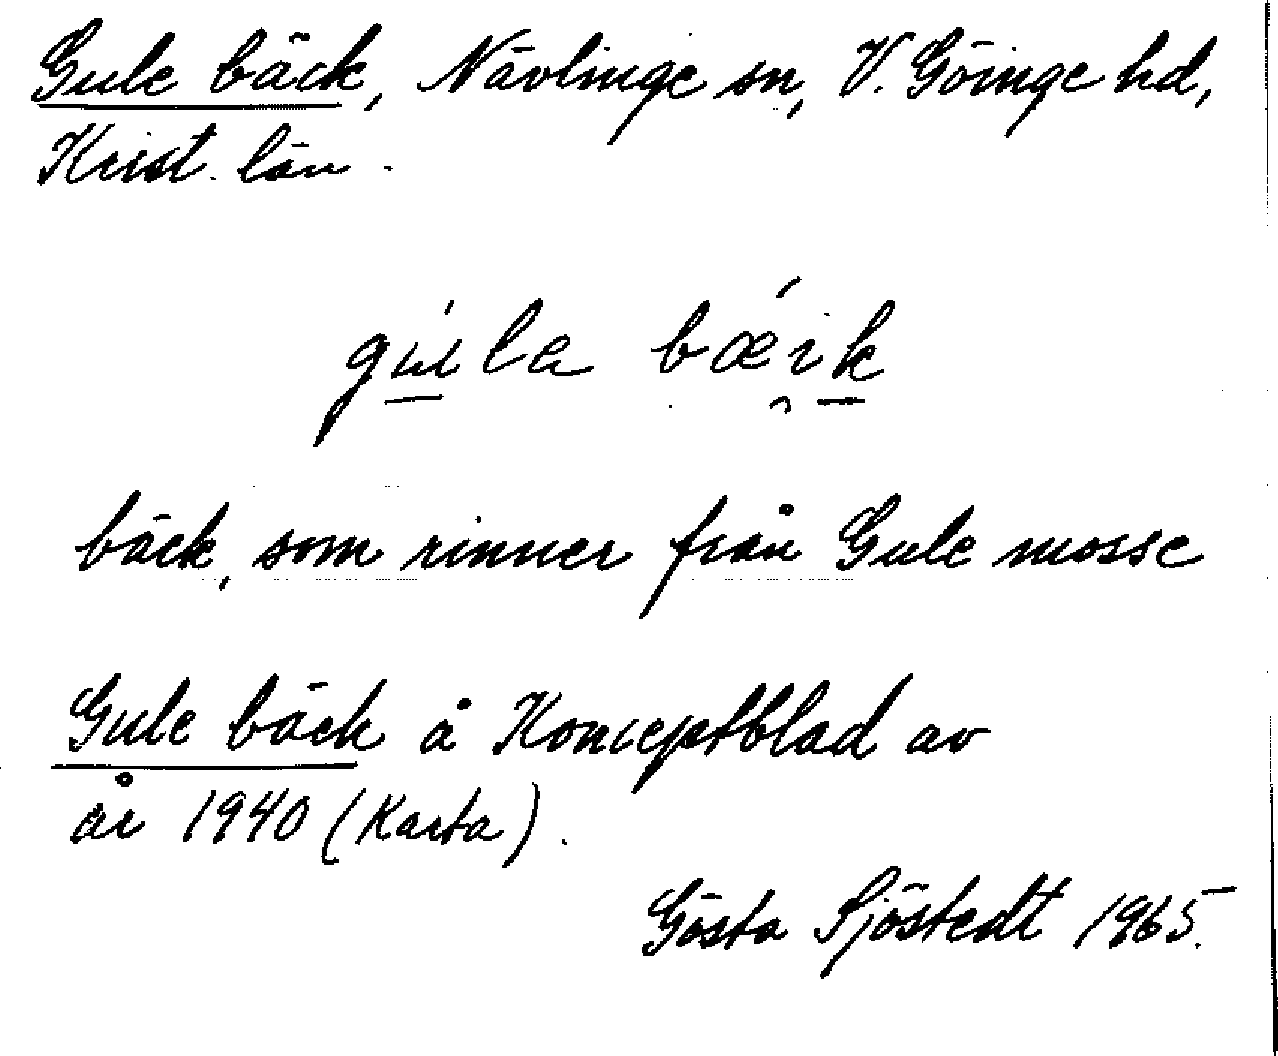 Gule bäck, Nävlinge sn, V. Göinge hd,
Krist. län.
gúla bǽi̯k
bäck, som rinner från Gule mosse
Gule bäck å Konceptblad av
år 1940 (Karta).
Gösta Sjöstedt 1965.